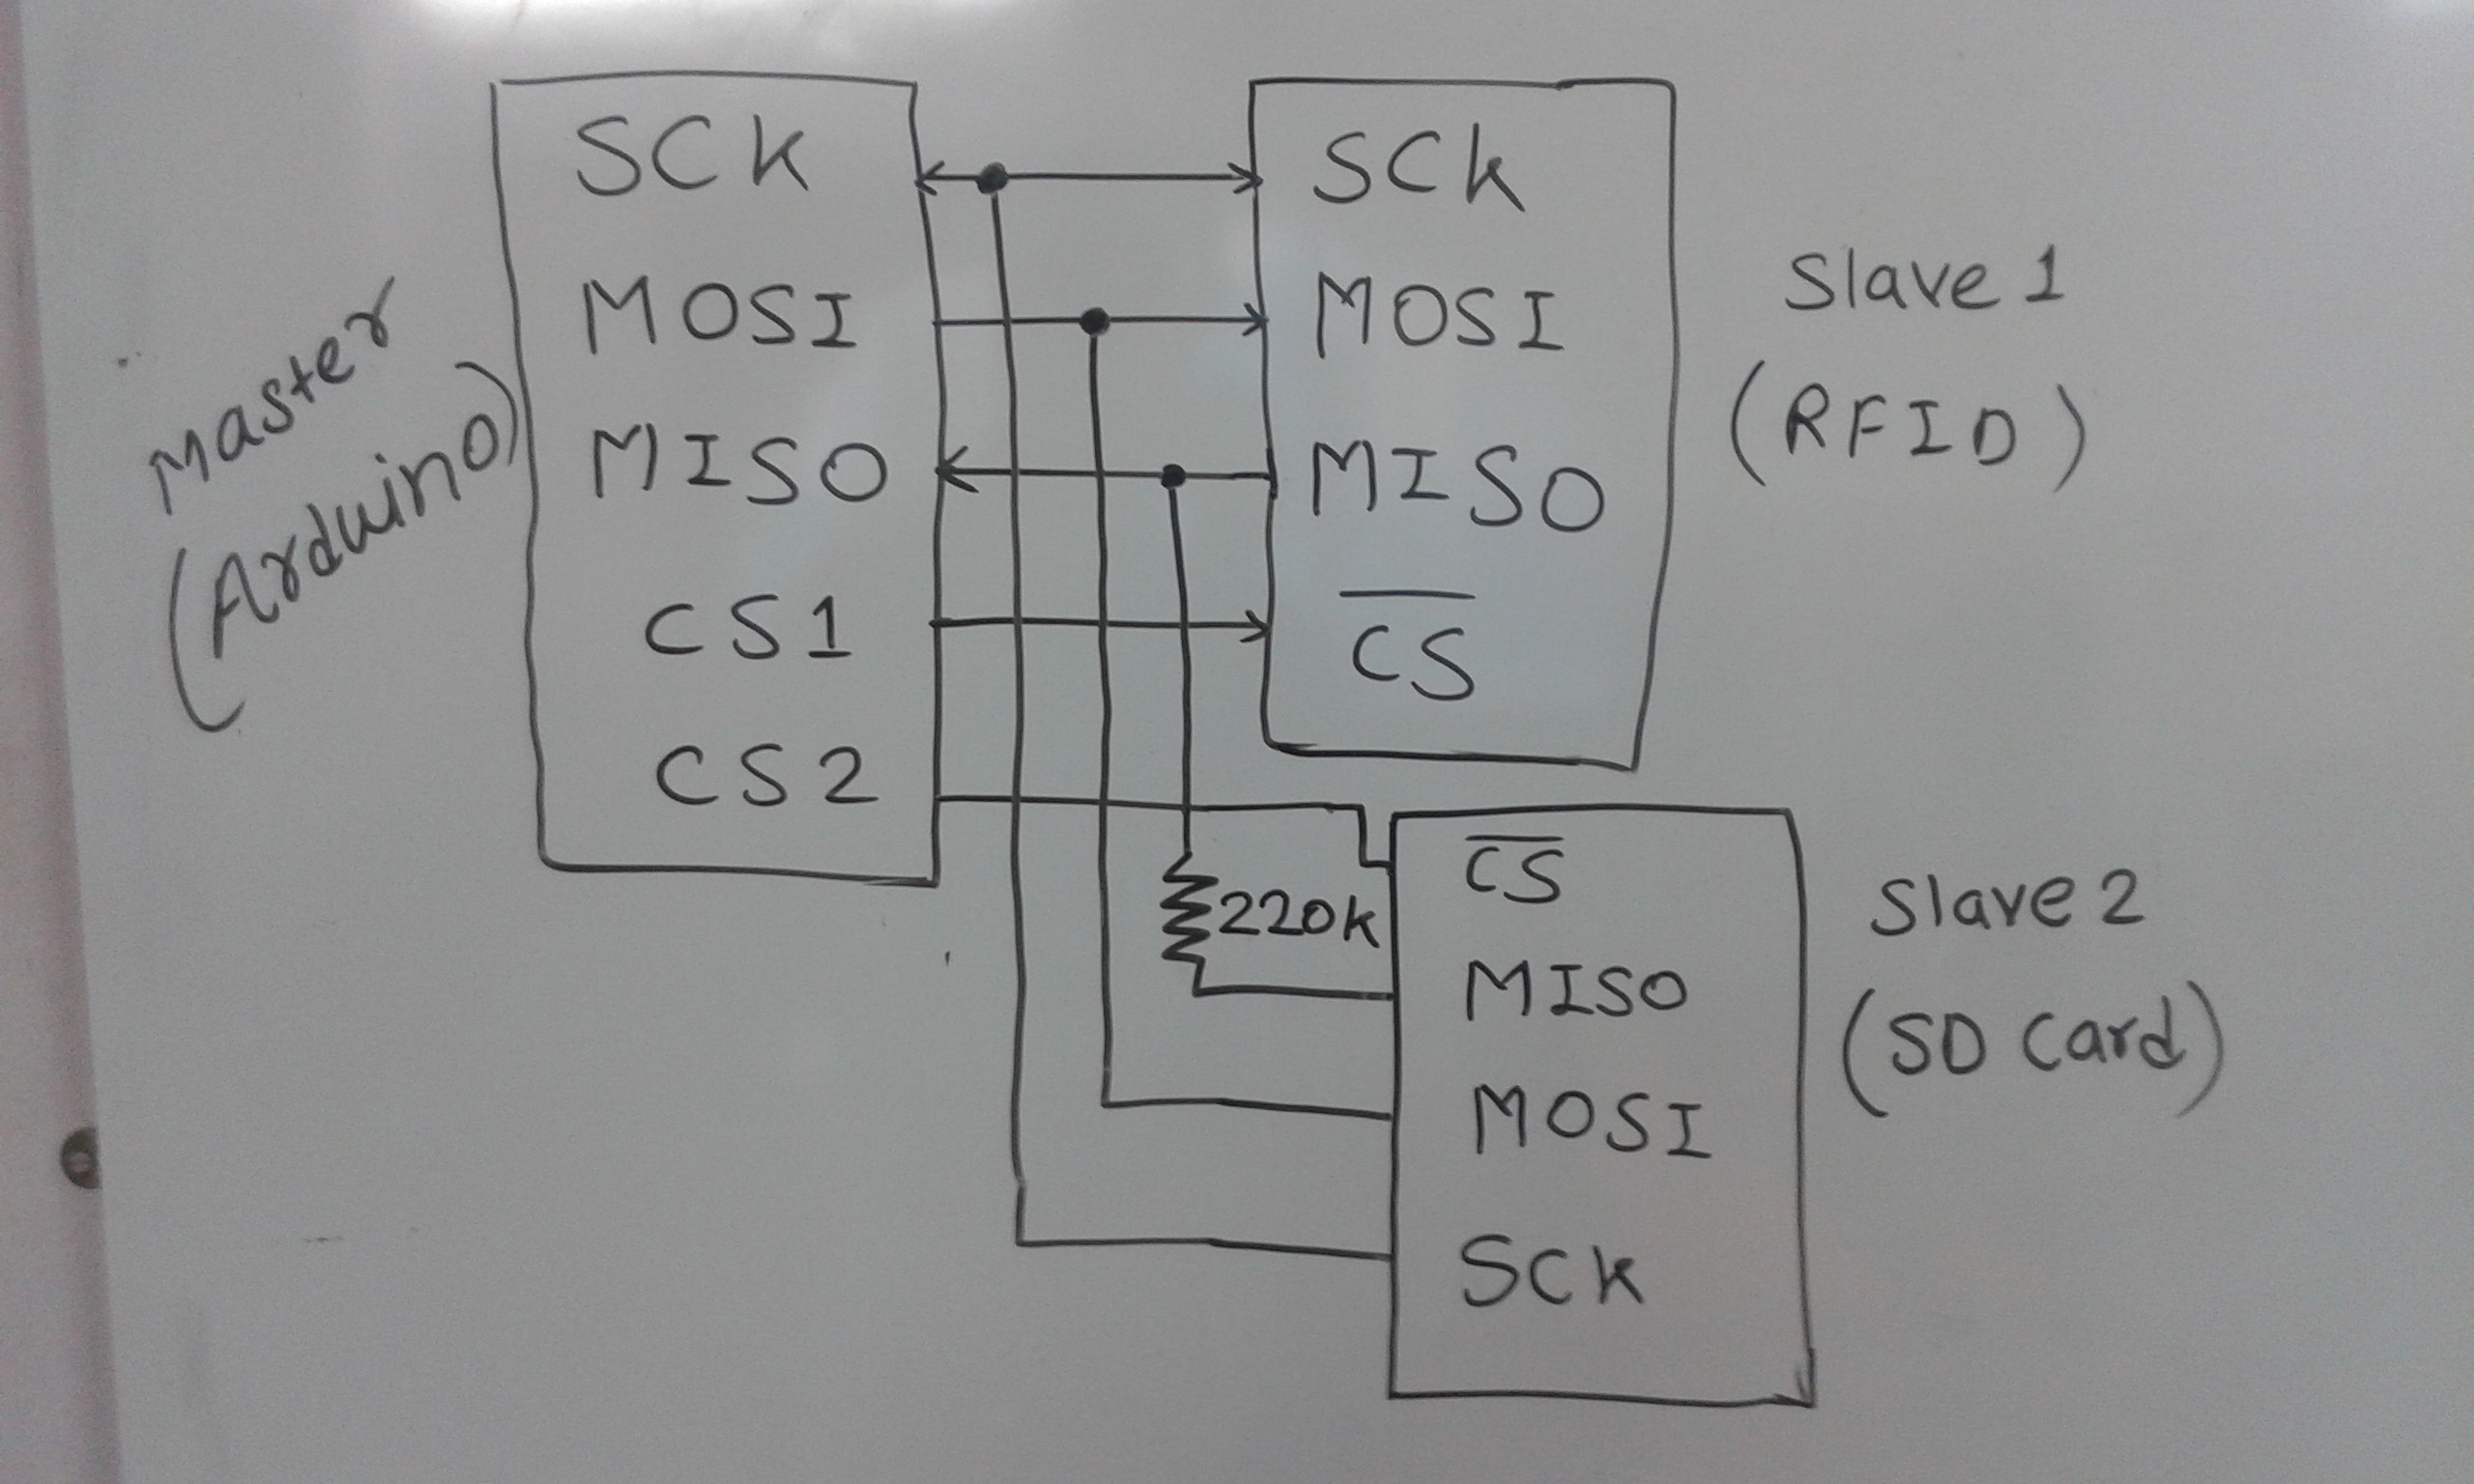 Master
(Arduino)
SCK
MOSI
MISO
CS1
CS2
SCK
MOSI
MISO
C̅S̅
Slave 1
(RFID)
220K
C̅S̅
MISO
MOSI
SCK
Slave 2
(SD Card)